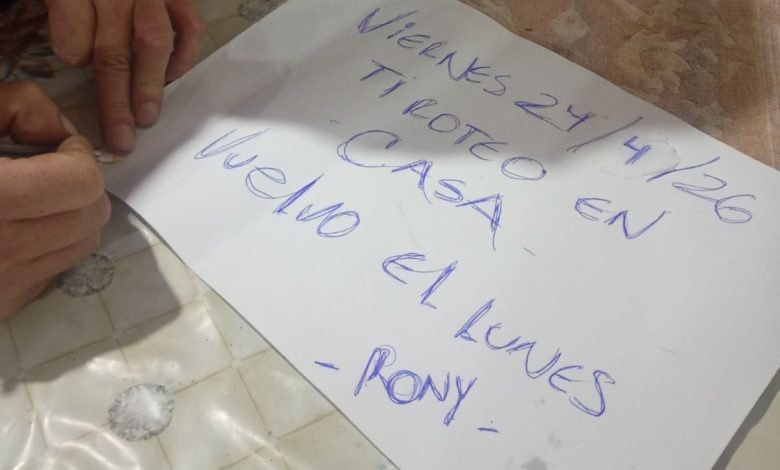 VIERNES 24/4/26
TIROTEO EN
- CASA -
VUELVO EL LUNES
- RONY -